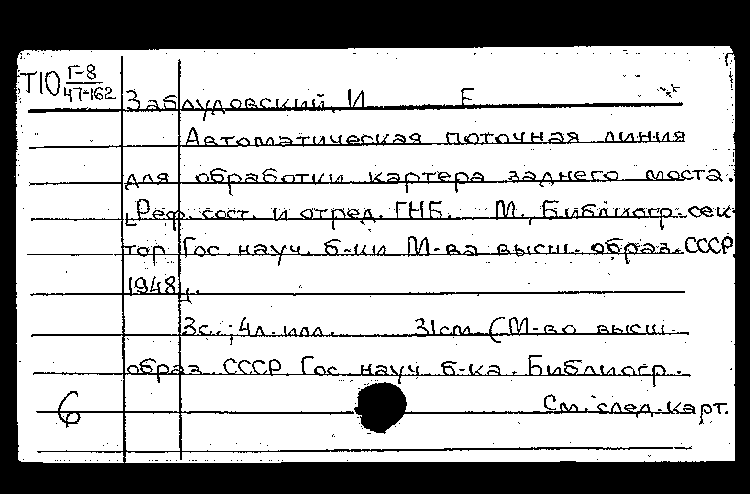 Т10 Г-8
47-162
Заблудовский, И Е
Автоматическая поточная линия
для обработки картера заднего моста.
[Реф. сост. и отред. ГНБ. М., Библиогр. сек-
тор Гос. науч. б-ки М-ва высш. образ. СССР,
1948].
3с.; 4л. илл. 31см. (М-во высш
образ. СССР. Гос. науч. б-ка. Библиогр.
6 См. след. карт.